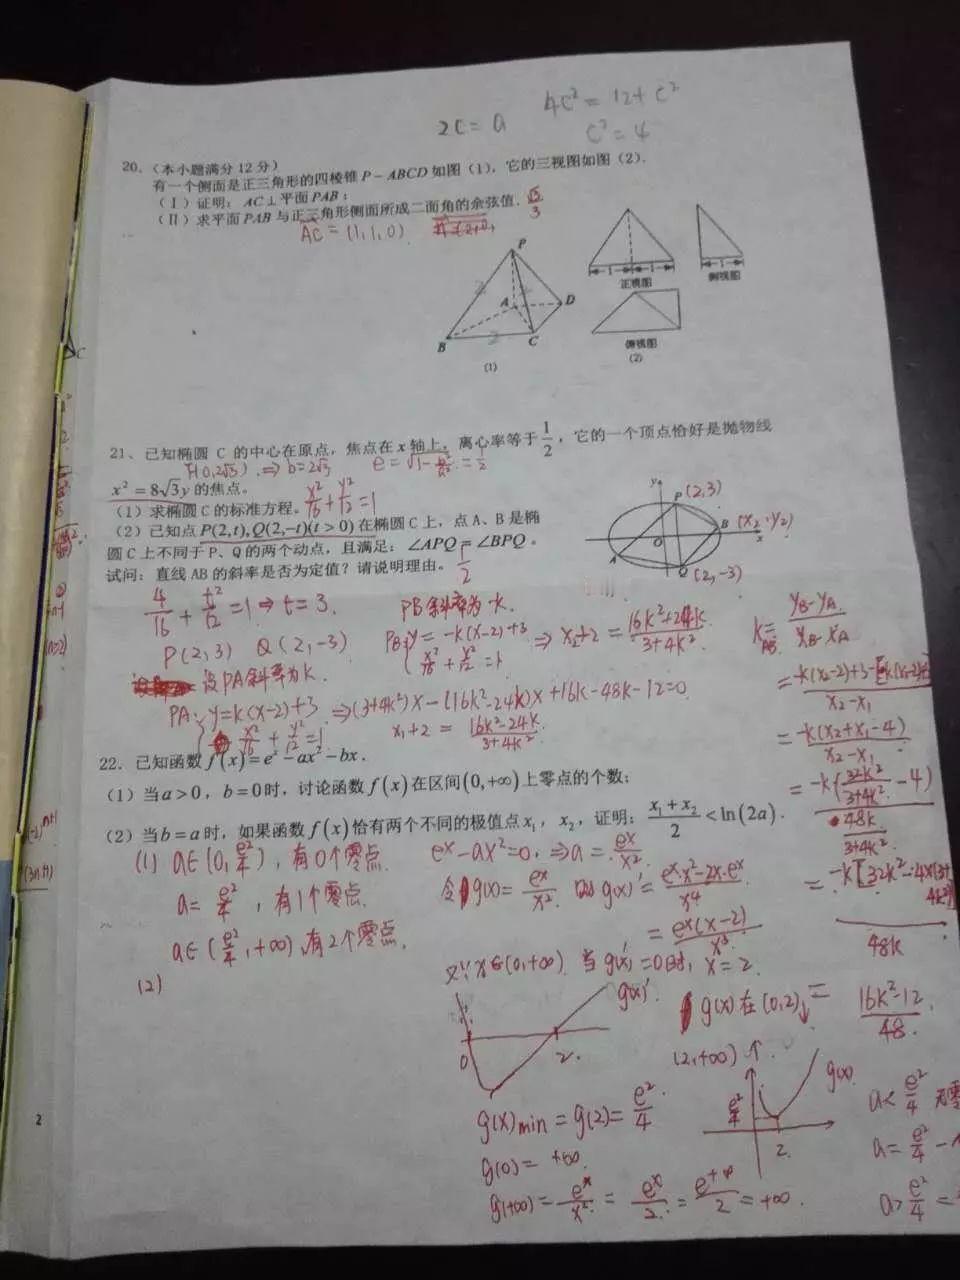 2C = a
4C² = 12 + C²
C² = 4
20.（本小题满分12分）
有一个侧面是正三角形的四棱锥P－ABCD如图（1），它的三视图如图（2）.
（Ⅰ）证明：AC⊥平面PAB；
（Ⅱ）求平面PAB与正三角形侧面所成二面角的余弦值. √3/3
AC = (1,1,0)
P
A
D
B
C
2
2
（1）
1
1
正视图
1
侧视图
俯视图
（2）
21、已知椭圆C的中心在原点，焦点在x轴上，离心率等于1/2，它的一个顶点恰好是抛物线
F(0,2√3) ⇒ b=2√3
x²=8√3y的焦点。
（1）求椭圆C的标准方程。 x²/16 + y²/12 = 1
（2）已知点P(2,t),Q(2,-t)(t>0)在椭圆C上，点A、B是椭
圆C上不同于P、Q的两个动点，且满足：∠APQ=∠BPQ。
试问：直线AB的斜率是否为定值？请说明理由。 1/2
y
P (2,3)
B (x₂,y₂)
O
x
A
Q (2,-3)
4/16 + t²/12 = 1 ⇒ t = 3.
P(2,3) Q(2,-3)
设PA斜率为k.
PA: y=k(x-2)+3
x²/16 + y²/12 = 1
⇒(3+4k²)x-(16k²-24k)x+16k-48k-12=0
x₁+2 = (16k²-24k)/(3+4k²)
PB斜率为-k.
PB: y=-k(x-2)+3
x²/16 + y²/12 = 1
⇒ x₂+2 = (16k²+24k)/(3+4k²)
k_AB = (y_B-y_A)/(x_B-x_A)
= -k(x₂+x₁-4)/(x₂-x₁)
48k
16k²-12
48
22. 已知函数f(x)=eˣ-ax²-bx.
（1）当a>0，b=0时，讨论函数f(x)在区间(0,+∞)上零点的个数；
（2）当b=a时，如果函数f(x)恰有两个不同的极值点x₁，x₂，证明：(x₁+x₂)/2<ln(2a).
(1) a∈(0, e²/4)，有0个零点
a= e²/4，有1个零点.
a∈(e²/4,+∞),有2个零点.
(2)
eˣ-ax²=0, ⇒a = eˣ/x².
令g(x)= eˣ/x² 则g(x)′= (eˣ·x²-2x·eˣ)/x⁴
= eˣ(x-2)/x³
又∵x∈(0,+∞) 当g(x)′=0时, x=2.
g(x)′
0
2.
g(x)在(0,2)↓
(2,+∞)↑.
g(x)min = g(2) = e²/4
g(0) = +∞.
g(+∞) = eˣ/x² = eˣ/2 = e^(+∞)/2 = +∞.
e²/4
2
g(x)
a< e²/4
a= e²/4
a> e²/4
2